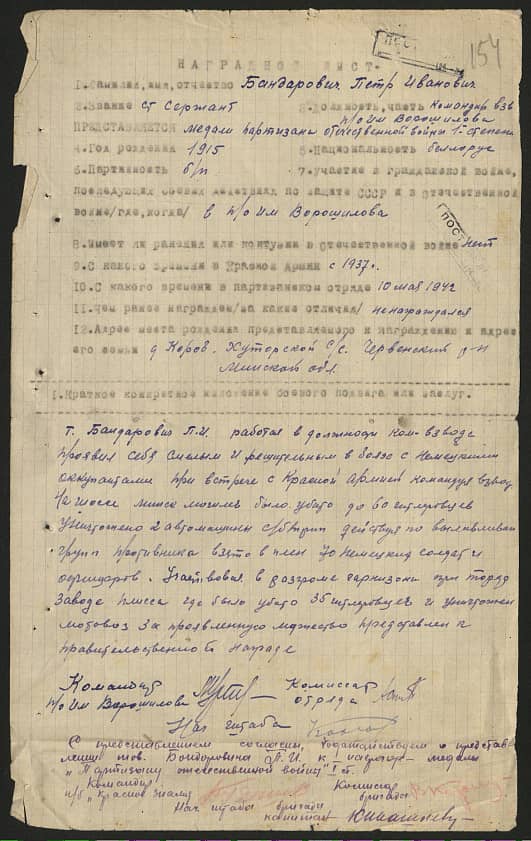 154
НАГРАДНОЙ ЛИСТ
1. Фамилия, имя, отчество Бандарович Петр Иванович
2. Звание ст сержант 3. Должность, часть командир взв
п/о Им Ворошилова
ПРЕДСТАВЛЯЕТСЯ медали партизана отечественной войны 1-степени
4. Год рождения 1915 5. Национальность беллорус
6. Партийность б/п 7. участие в гражданской войне,
последующих боевых действиях по защите СССР и в отечественной
войне/где, когда/ в п/о Им Ворошилова
8. Имеет ли ранения или контузии в отечественной войне нет
9. С какого времени в Красной Армии с 1937г.
10. С какого времени в партизанском отряде 10 мая 1942
11. Чем ранее награжден/за какие отличия/ не награждался
12. Адрес места рождения представляемого к награждению и адрес
его семьи д Коров. Хуторской с/с. Червенский р-н
Минской обл.
1. Краткое конкретное изложение боевого подвига или заслуг.
т. Бандарович П.И. работая в должности ком-взвода
проявил себя смелым и решительным в боях с немецкими
оккупантами при встрече с Красной армией командуя взвод.
На шоссе минск могилев было убито до 60 гитлеровцев
Уничтожено 2 автомашины действуя по вылавливан
групп противника взято в плен 70 немецких солдат и
офицеров. Участвовал в розгроме гарнизона при торф
Заводе где было убито 35 гитлеровцев и уничтожен
мотовоз За проявленную мужество представлен к
правительственной награде
Командир Комиссар
п/о Им Ворошилова отряда
Нач штаба
С представлением согласны, ходатайствуем о представ
лении тов. Бондоровича П.И. к I медали
"Партизану отечественной войны" I ст.
Командир Комиссар
п/б "Красное знамя" бригады
Нач штаба бригады
капитан